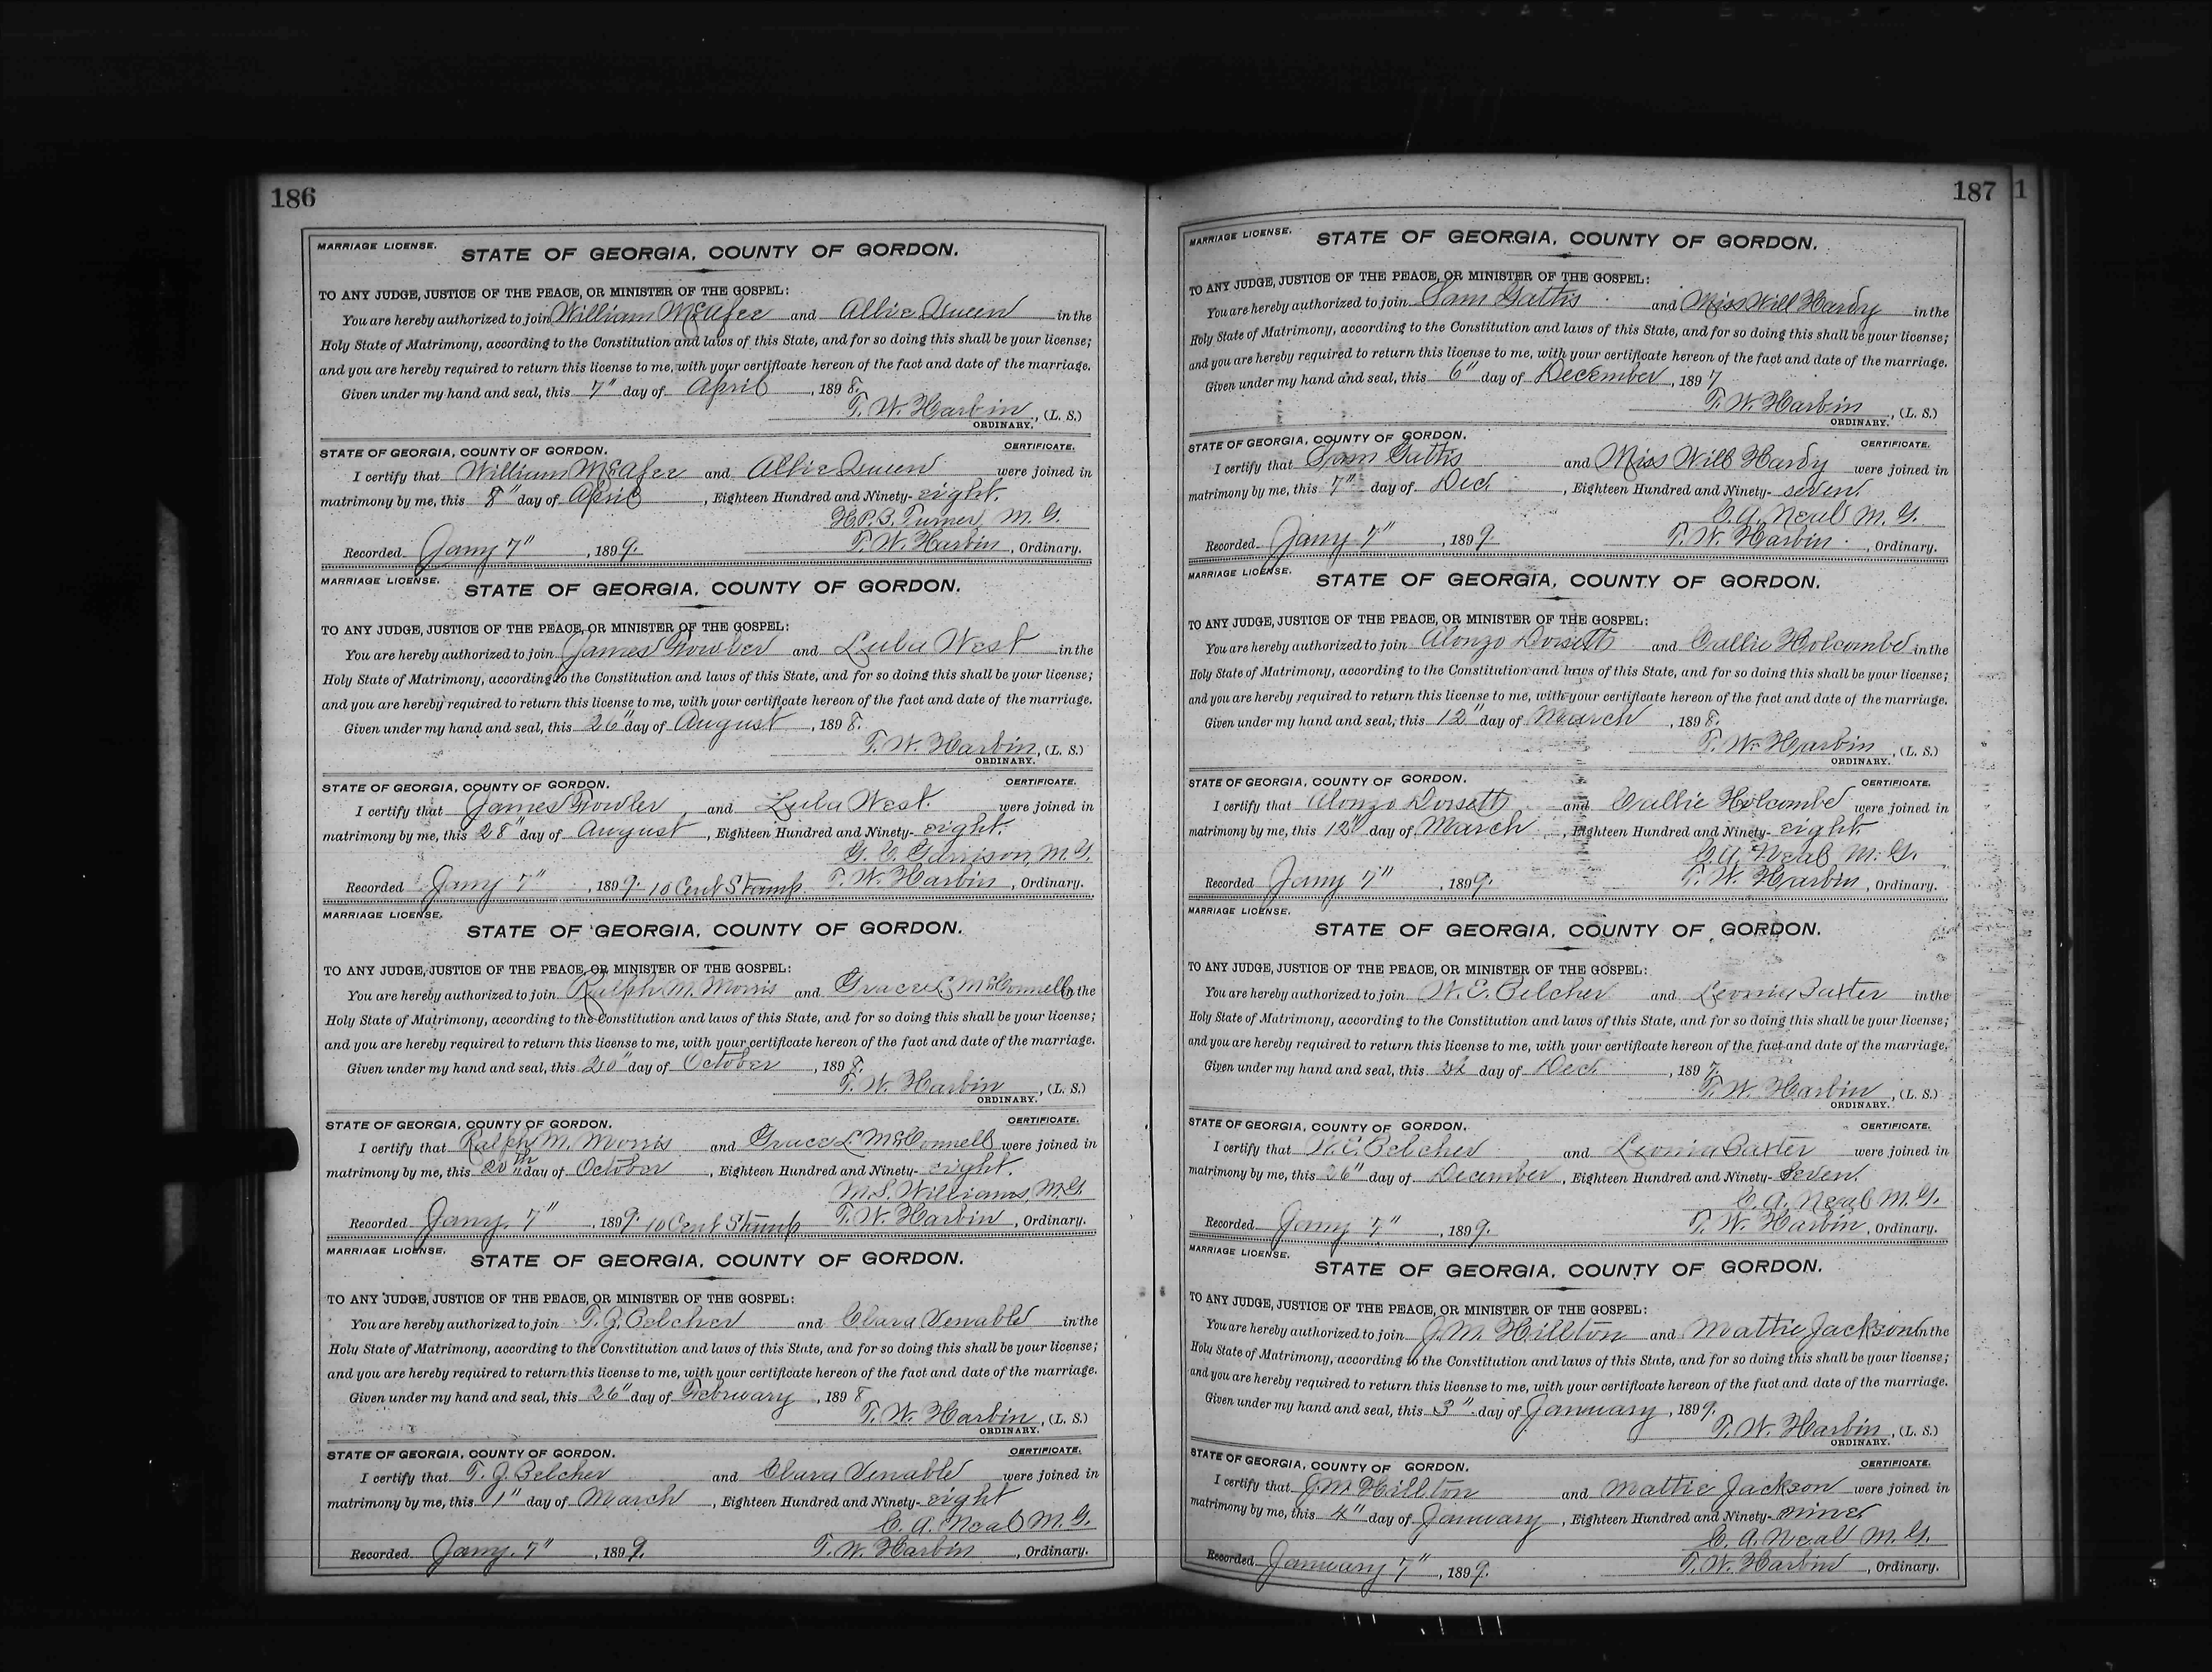 186
MARRIAGE LICENSE.
STATE OF GEORGIA, COUNTY OF GORDON.
TO ANY JUDGE, JUSTICE OF THE PEACE, OR MINISTER OF THE GOSPEL:
You are hereby authorized to join William McAfee and Allie Queen in the
Holy State of Matrimony, according to the Constitution and laws of this State, and for so doing this shall be your license;
and you are hereby required to return this license to me, with your certificate hereon of the fact and date of the marriage.
Given under my hand and seal, this 7" day of April, 1898.
T. W. Harbin, (L. S.)
ORDINARY.
STATE OF GEORGIA, COUNTY OF GORDON. CERTIFICATE.
I certify that William McAfee and Allie Queen were joined in
matrimony by me, this 8" day of April, Eighteen Hundred and Ninety-eight.
H.P.B. Turner, M. G.
Recorded Jany 7", 1899. T. W. Harbin, Ordinary.
MARRIAGE LICENSE.
STATE OF GEORGIA, COUNTY OF GORDON.
TO ANY JUDGE, JUSTICE OF THE PEACE, OR MINISTER OF THE GOSPEL:
You are hereby authorized to join James Fowler and Lula West in the
Holy State of Matrimony, according to the Constitution and laws of this State, and for so doing this shall be your license;
and you are hereby required to return this license to me, with your certificate hereon of the fact and date of the marriage.
Given under my hand and seal, this 26" day of August, 1898.
T. W. Harbin, (L. S.)
ORDINARY.
STATE OF GEORGIA, COUNTY OF GORDON. CERTIFICATE.
I certify that James Fowler and Lula West. were joined in
matrimony by me, this 28" day of August, Eighteen Hundred and Ninety-eight.
G. C. Garrison, M. G.
Recorded Jany 7", 1899. 10 Cent Stamp. T. W. Harbin, Ordinary.
MARRIAGE LICENSE.
STATE OF GEORGIA, COUNTY OF GORDON.
TO ANY JUDGE, JUSTICE OF THE PEACE, OR MINISTER OF THE GOSPEL:
You are hereby authorized to join Ralph M. Morris and Grace L McConnell in the
Holy State of Matrimony, according to the Constitution and laws of this State, and for so doing this shall be your license;
and you are hereby required to return this license to me, with your certificate hereon of the fact and date of the marriage.
Given under my hand and seal, this 20" day of October, 1898.
T. W. Harbin, (L. S.)
ORDINARY.
STATE OF GEORGIA, COUNTY OF GORDON. CERTIFICATE.
I certify that Ralph M. Morris and Grace L. McConnell were joined in
matrimony by me, this 20th day of October, Eighteen Hundred and Ninety-eight.
M. S. Williams, M. G.
Recorded Jany. 7", 1899. 10 Cent Stamp T. W. Harbin, Ordinary.
MARRIAGE LICENSE.
STATE OF GEORGIA, COUNTY OF GORDON.
TO ANY JUDGE, JUSTICE OF THE PEACE, OR MINISTER OF THE GOSPEL:
You are hereby authorized to join T. J. Belcher and Clara Venable in the
Holy State of Matrimony, according to the Constitution and laws of this State, and for so doing this shall be your license;
and you are hereby required to return this license to me, with your certificate hereon of the fact and date of the marriage.
Given under my hand and seal, this 26" day of February, 1898
T. W. Harbin, (L. S.)
ORDINARY.
STATE OF GEORGIA, COUNTY OF GORDON. CERTIFICATE.
I certify that T. J. Belcher and Clara Venable were joined in
matrimony by me, this 1" day of March, Eighteen Hundred and Ninety-eight
C. A. Neal M. G.
Recorded Jany. 7", 1899. T. W. Harbin, Ordinary.
187 1
MARRIAGE LICENSE.
STATE OF GEORGIA, COUNTY OF GORDON.
TO ANY JUDGE, JUSTICE OF THE PEACE, OR MINISTER OF THE GOSPEL:
You are hereby authorized to join Sam Gattis and Miss Will Hardy in the
Holy State of Matrimony, according to the Constitution and laws of this State, and for so doing this shall be your license;
and you are hereby required to return this license to me, with your certificate hereon of the fact and date of the marriage.
Given under my hand and seal, this 6" day of December, 1897
T. W. Harbin, (L. S.)
ORDINARY.
STATE OF GEORGIA, COUNTY OF GORDON. CERTIFICATE.
I certify that Sam Gattis and Miss Will Hardy were joined in
matrimony by me, this 7" day of Dec., Eighteen Hundred and Ninety-seven.
C. A. Neal M. G.
Recorded Jany 7", 1899. T. W. Harbin, Ordinary.
MARRIAGE LICENSE.
STATE OF GEORGIA, COUNTY OF GORDON.
TO ANY JUDGE, JUSTICE OF THE PEACE, OR MINISTER OF THE GOSPEL:
You are hereby authorized to join Alonzo Dorsett and Callie Holcombe in the
Holy State of Matrimony, according to the Constitution and laws of this State, and for so doing this shall be your license;
and you are hereby required to return this license to me, with your certificate hereon of the fact and date of the marriage.
Given under my hand and seal, this 12" day of March, 1898.
T. W. Harbin, (L. S.)
ORDINARY.
STATE OF GEORGIA, COUNTY OF GORDON. CERTIFICATE.
I certify that Alonzo Dorsett and Callie Holcombe were joined in
matrimony by me, this 12" day of March, Eighteen Hundred and Ninety-eight.
C. A. Neal M. G.
Recorded Jany 7", 1899. T. W. Harbin, Ordinary.
MARRIAGE LICENSE.
STATE OF GEORGIA, COUNTY OF GORDON.
TO ANY JUDGE, JUSTICE OF THE PEACE, OR MINISTER OF THE GOSPEL:
You are hereby authorized to join W. E. Belcher and Leonia Baxter in the
Holy State of Matrimony, according to the Constitution and laws of this State, and for so doing this shall be your license;
and you are hereby required to return this license to me, with your certificate hereon of the fact and date of the marriage.
Given under my hand and seal, this day of Dec., 1897.
T. W. Harbin, (L. S.)
ORDINARY.
STATE OF GEORGIA, COUNTY OF GORDON. CERTIFICATE.
I certify that W. E. Belcher and Leonia Baxter were joined in
matrimony by me, this 26" day of December, Eighteen Hundred and Ninety-Seven.
C. A. Neal M. G.
Recorded Jany 7", 1899. T. W. Harbin, Ordinary.
MARRIAGE LICENSE.
STATE OF GEORGIA, COUNTY OF GORDON.
TO ANY JUDGE, JUSTICE OF THE PEACE, OR MINISTER OF THE GOSPEL:
You are hereby authorized to join J. M. Hillton and Mattie Jackson in the
Holy State of Matrimony, according to the Constitution and laws of this State, and for so doing this shall be your license;
and you are hereby required to return this license to me, with your certificate hereon of the fact and date of the marriage.
Given under my hand and seal, this 3" day of January, 1899.
T. W. Harbin, (L. S.)
ORDINARY.
STATE OF GEORGIA, COUNTY OF GORDON. CERTIFICATE.
I certify that J. M. Hillton and Mattie Jackson were joined in
matrimony by me, this 4" day of January, Eighteen Hundred and Ninety-nine
C. A. Neal M. G.
Recorded January 7", 1899. T. W. Harbin, Ordinary.